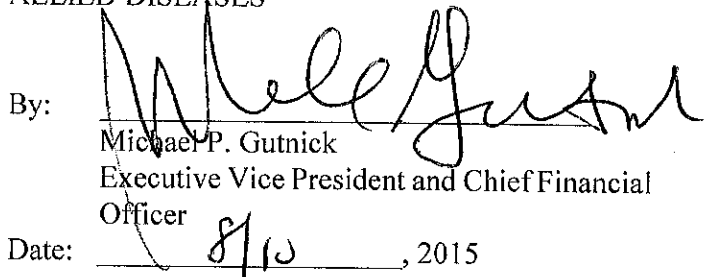 ALLIED DISEASES
By:
Michael P. Gutnick
Executive Vice President and Chief Financial
Officer
Date: 8/10, 2015